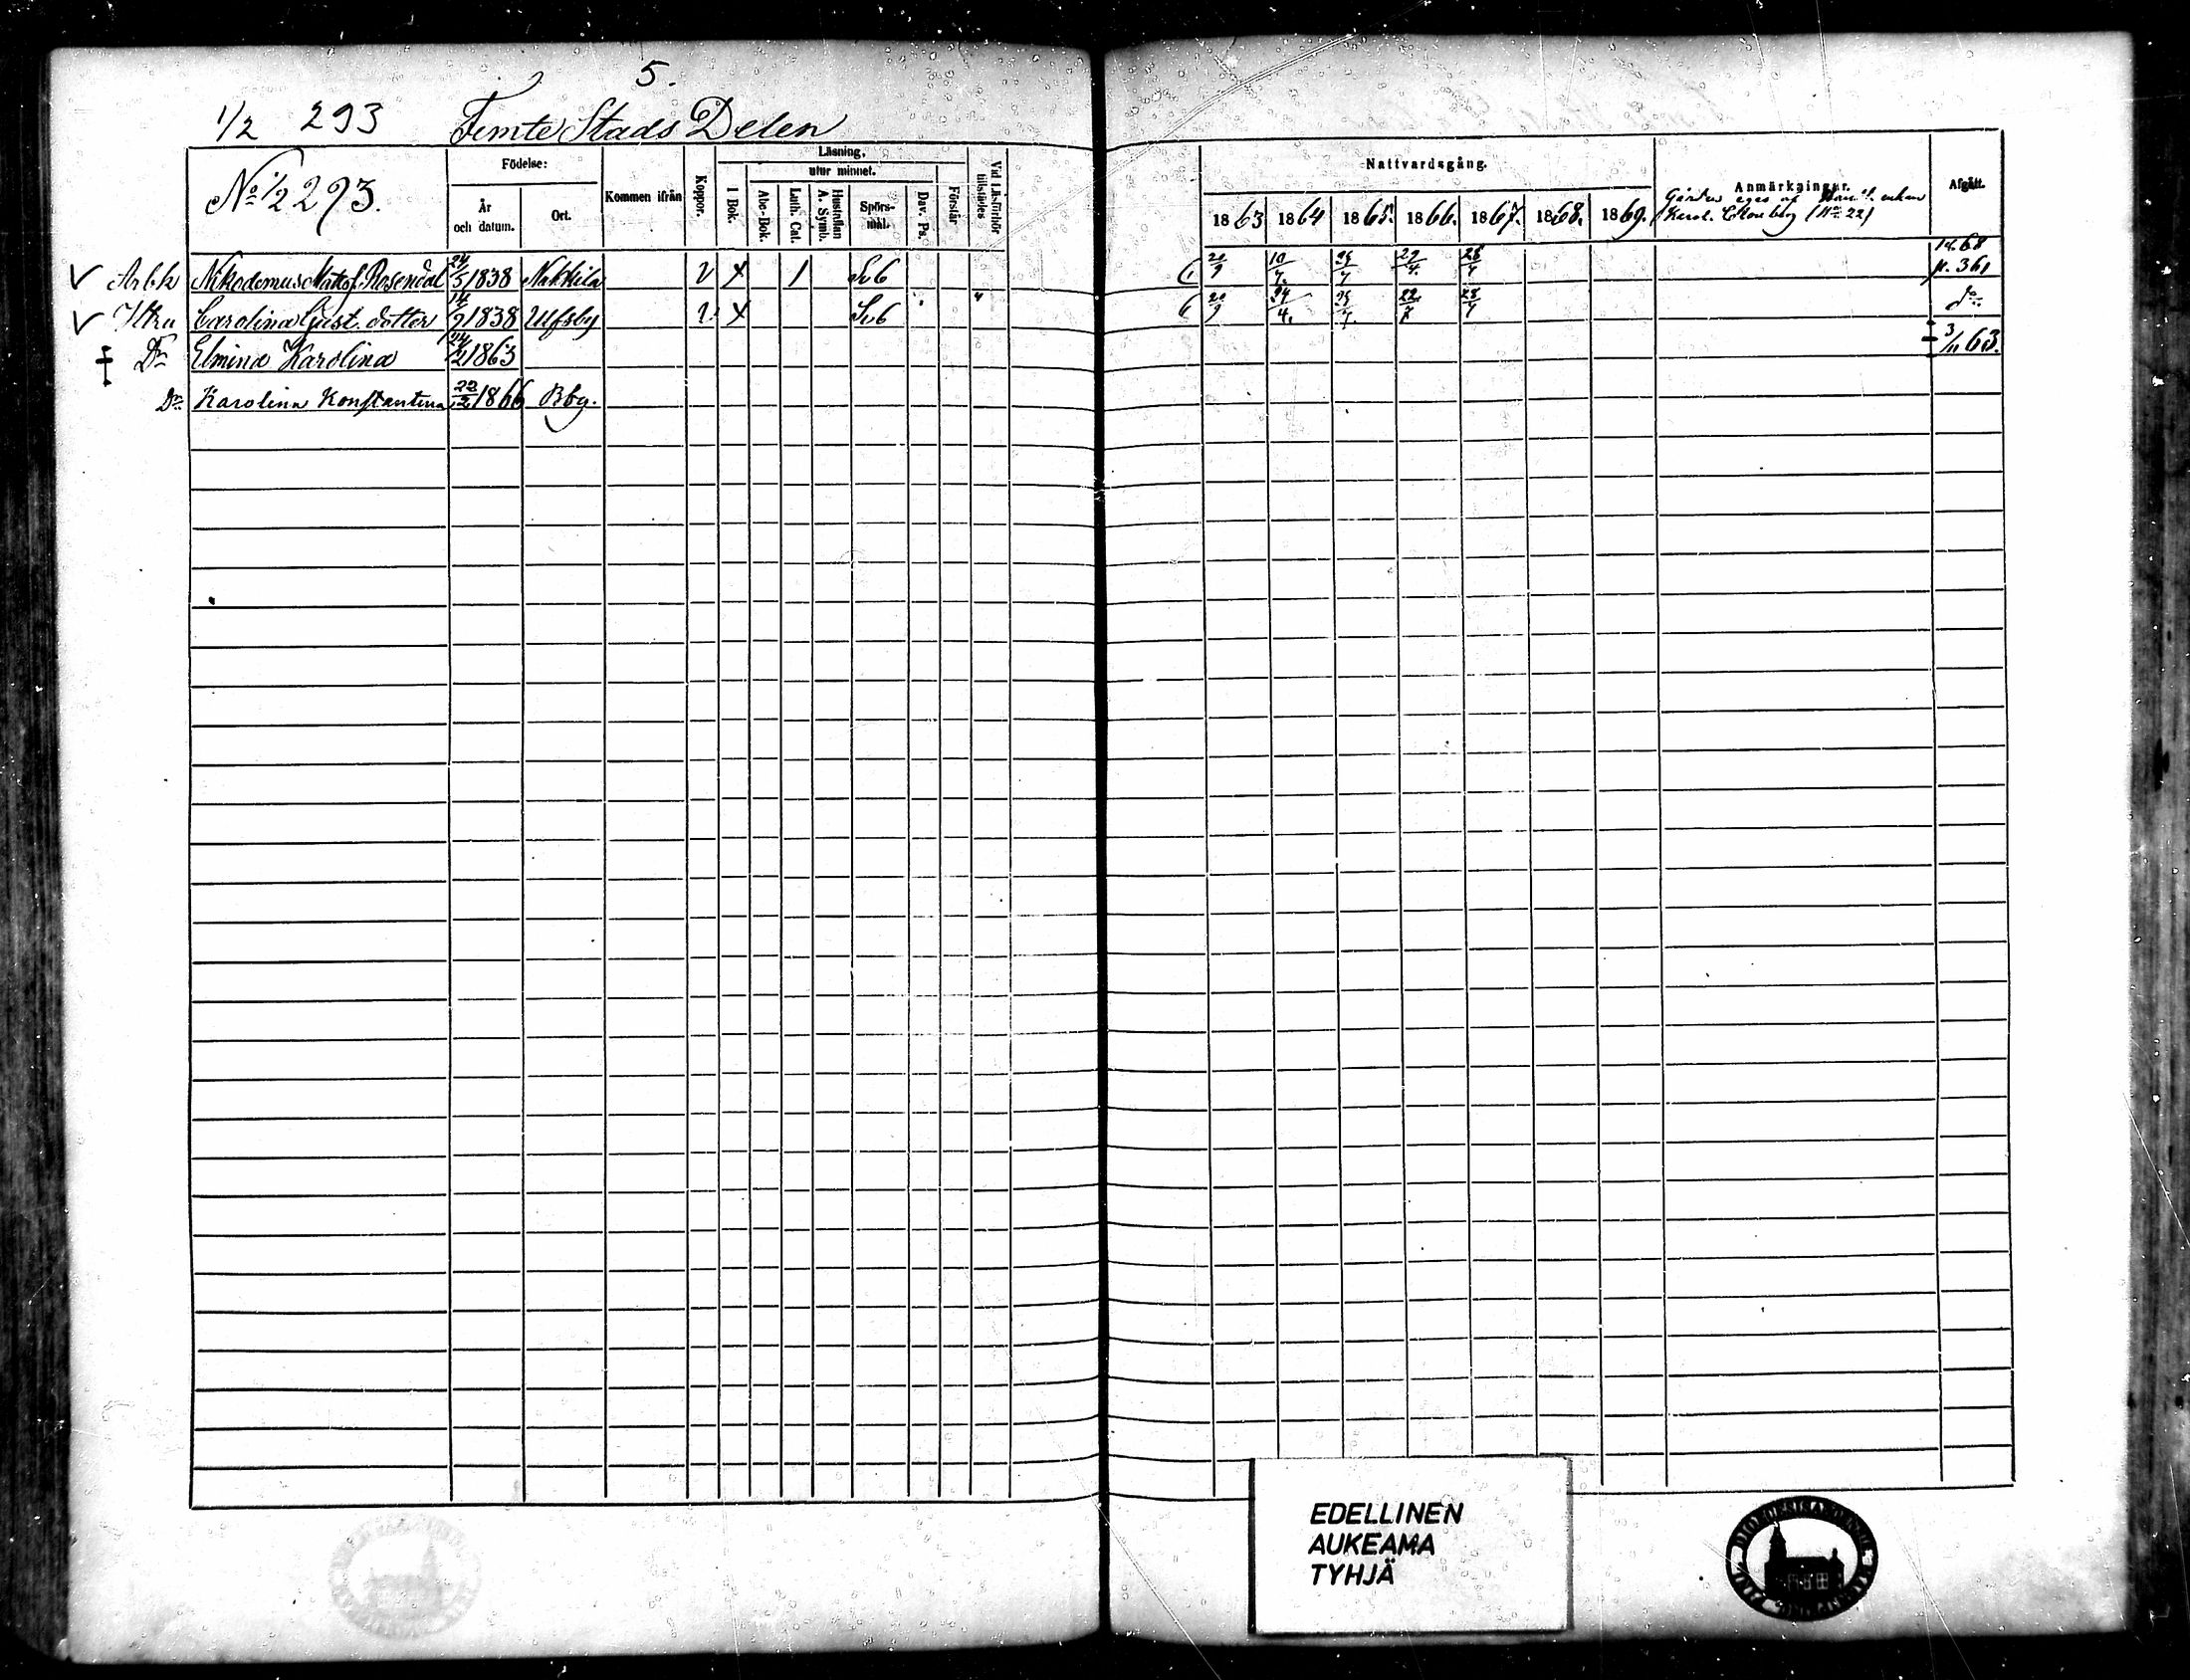 5.
1/2 293 Femte Stads Delen
No 1/2 293.
Födelse:
År och datum.
Ort.
Kommen ifrån
Koppor.
Läsning,
utur minnet.
I Bok.
Abc-Bok.
Luth. Cat.
Hustaflan A. Symb.
Spörs-mål.
Dav. Ps.
Förstår
Vid Läsförhör tillstädes
Nattvardsgång.
1863 1864 1865. 1866. 1867. 1868. 1869.
Anmärkningar.
Gården eges af enkan
Karol. (No 22)
Afgått.
Arb.k Nikodemus Rosendal 24/5 1838 Nakkila v x / Sv6 20/9 10/7. 29/4. 28/4 14.68 p. 361
Htru Carolina Gust. dotter 14/9 1838 Ulfsby v. x Sv6 " 20/9 24/4. 22/7 28/4 do
† Dr Elmina Karolina 24/2 1863 † 3/11 63.
Dr Karolina Konstantina 22/2 1866 Bbg.
EDELLINEN
AUKEAMA
TYHJÄ